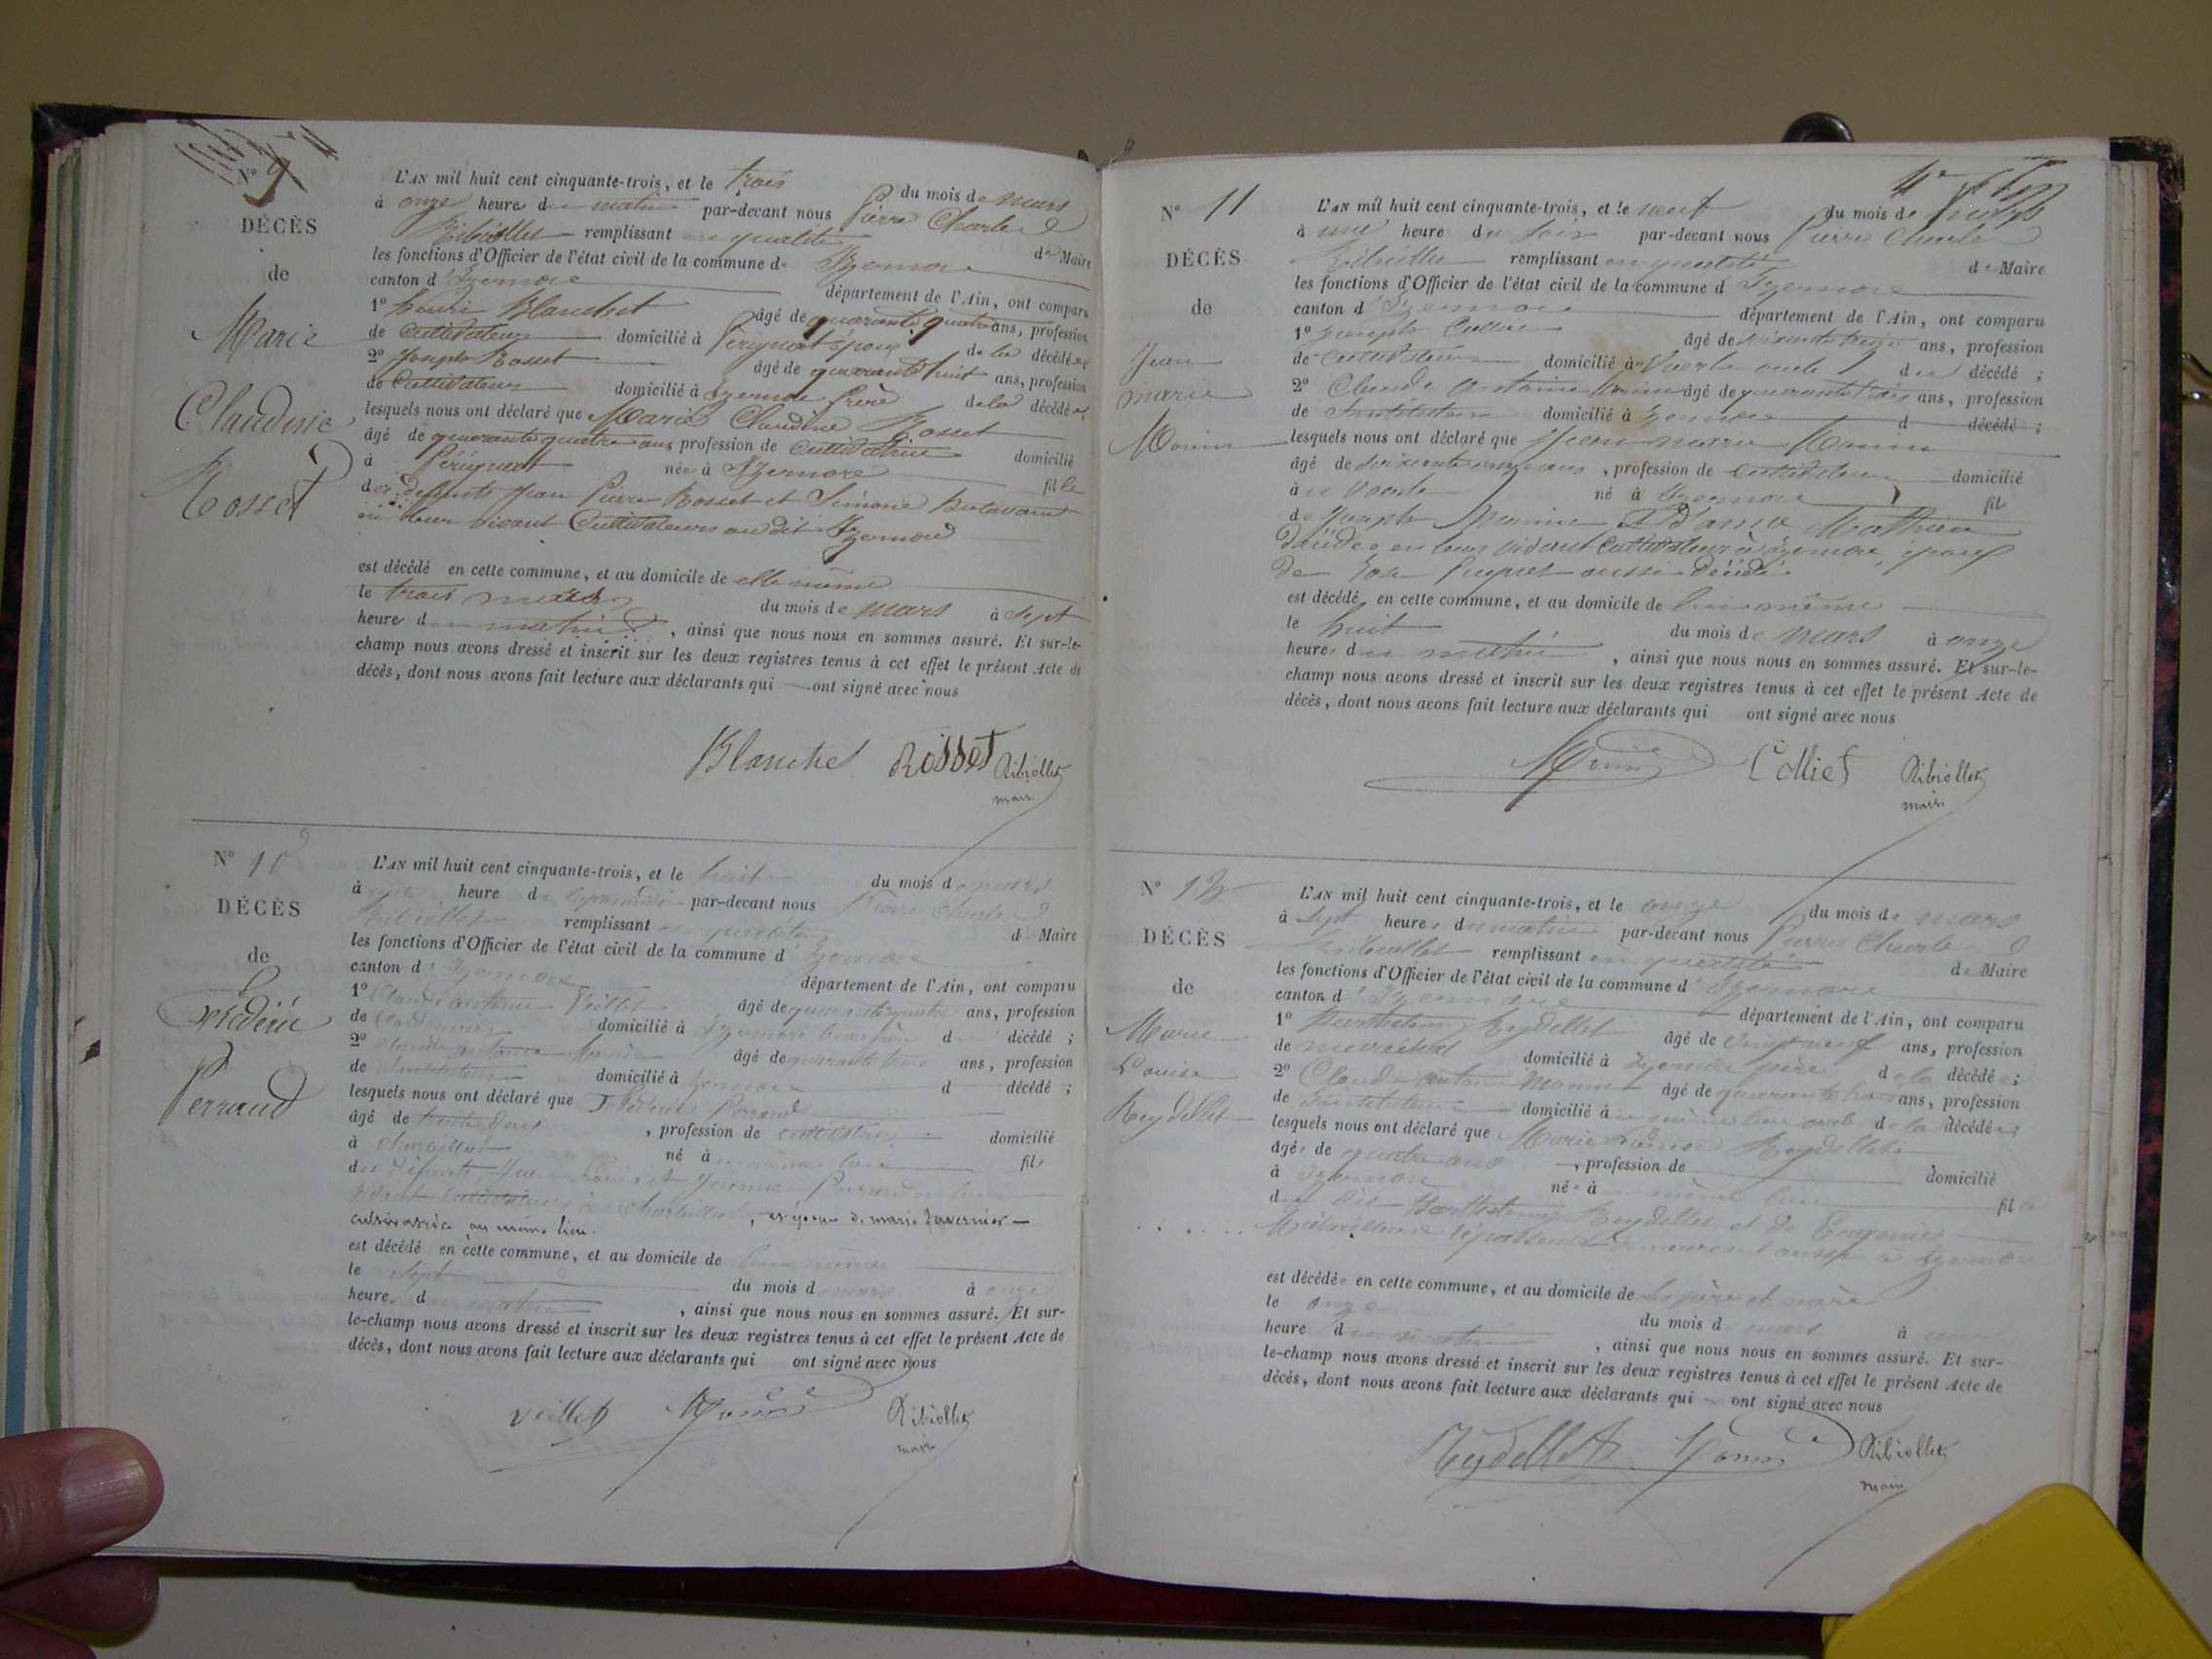 N° 9
DÉCÈS
de
Marie
Claudine
Rosset
L'AN mil huit cent cinquante-trois, et le trois du mois de mars
à onze heure du matin par-devant nous Pierre Charles
Ribiollet remplissant en qualité de Maire
les fonctions d'Officier de l'état civil de la commune d' Izernore
canton d' Izernore département de l'Ain, ont comparu
1° henri Blanchet âgé de quarante quatre ans, profession
de Cultivateur domicilié à Pérignat époux de la décédée
2° Joseph Rosset âgé de quarante huit ans, profession
de Cultivateur domicilié à Izernore frère de la décédée;
lesquels nous ont déclaré que Marie Claudine Rosset
âgé de quarante quatre ans profession de Cultivatrice domicilié
à Pérignat née à Izernore fille
des défunts Jean Pierre Rosset et Simone
en leur vivant Cultivateurs au dit Izernore
est décédé en cette commune, et au domicile de elle même
le trois mars du mois de mars à sept
heure du matin, ainsi que nous nous en sommes assuré. Et sur-le-
champ nous avons dressé et inscrit sur les deux registres tenus à cet effet le présent Acte de
décès, dont nous avons fait lecture aux déclarants qui ont signé avec nous
Blanchet Rosset Ribiollet
maire
N° 10
DÉCÈS
de
Frédéric
Perraud
L'AN mil huit cent cinquante-trois, et le huit du mois de mars
à une heure de l'après midi par-devant nous Pierre Charles
Ribiollet remplissant en qualité de Maire
les fonctions d'Officier de l'état civil de la commune d' Izernore
canton d' Izernore département de l'Ain, ont comparu
1° Claude antoine Veillet âgé de quarante quatre ans, profession
de Cordonnier domicilié à Izernore beau frère du décédé;
2° Claude antoine Monin âgé de quarante trois ans, profession
de Instituteur domicilié à Izernore d décédé;
lesquels nous ont déclaré que Frédéric Perraud
âgé de trente deux, profession de cultivateur domicilié
à Charbillat né à même lieu fils
des défunts Louis et Jeanne Perraud en leur
vivant cultivateurs à Charbillat, époux de marie Tavernier
au même lieu.
est décédé en cette commune, et au domicile de lui même
le sept du mois de mars à onze
heure du matin, ainsi que nous nous en sommes assuré. Et sur-
le-champ nous avons dressé et inscrit sur les deux registres tenus à cet effet le présent Acte de
décès, dont nous avons fait lecture aux déclarants qui ont signé avec nous
Veillet Monin Ribiollet
maire
N° 11
DÉCÈS
de
Jean
marie
Monin
L'AN mil huit cent cinquante-trois, et le neuf du mois de mars
à une heure du soir par-devant nous Pierre Charles
Ribiollet remplissant en qualité de Maire
les fonctions d'Officier de l'état civil de la commune d' Izernore
canton d' Izernore département de l'Ain, ont comparu
1° Joseph Colliet âgé de soixante treize ans, profession
de Cultivateur domicilié à Voerle oncle du décédé;
2° Claude Antoine Monin âgé de quarante trois ans, profession
de Instituteur domicilié à Izernore d décédé;
lesquels nous ont déclaré que Jean marie Monin
âgé de soixante onze ans, profession de Cultivateur domicilié
à Voerle né à Izernore fils
de Joseph Monin et d'anne Mathieu
décédés en leur vivant Cultivateurs à Izernore, époux
de Rose aussi décédée
est décédé en cette commune, et au domicile de lui même
le huit du mois de mars à onze
heures du matin, ainsi que nous nous en sommes assuré. Et sur-le-
champ nous avons dressé et inscrit sur les deux registres tenus à cet effet le présent Acte de
décès, dont nous avons fait lecture aux déclarants qui ont signé avec nous
Monin Colliet Ribiollet
maire
N° 12
DÉCÈS
de
Marie
Louise
Reydellet
L'AN mil huit cent cinquante-trois, et le onze du mois de mars
à sept heures du matin par-devant nous Pierre Charles
Ribiollet remplissant en qualité de Maire
les fonctions d'Officier de l'état civil de la commune d' Izernore
canton d' Izernore département de l'Ain, ont comparu
1° Barthelemy Reydellet âgé de vingt neuf ans, profession
de maréchal domicilié à Izernore père de la décédée;
2° Claude antoine Monin âgé de quarante trois ans, profession
de Instituteur domicilié à même lieu oncle de la décédée;
lesquels nous ont déclaré que Marie Louise Reydellet
âgée de quatre ans, profession de domicilié
à Izernore née à même lieu fille
du dit Barthelemy Reydellet et de Eugenie
demeurant aussi à Izernore
est décédée en cette commune, et au domicile de ses père et mère
le onze du mois de mars à une
heure du matin, ainsi que nous nous en sommes assuré. Et sur-
le-champ nous avons dressé et inscrit sur les deux registres tenus à cet effet le présent Acte de
décès, dont nous avons fait lecture aux déclarants qui ont signé avec nous
Reydellet Monin Ribiollet
maire